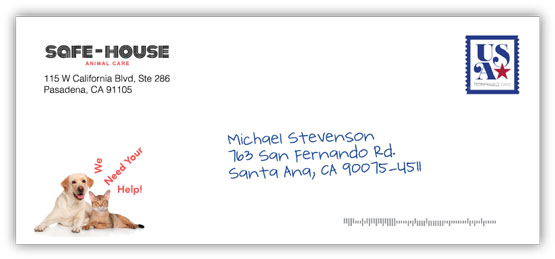 SAFE-HOUSE
ANIMAL CARE
115 W California Blvd, Ste 286
Pasadena, CA 91105
US
A
Michael Stevenson
763 San Fernando Rd.
Santa Ana, CA 90075-4511
We
Need Your
Help!